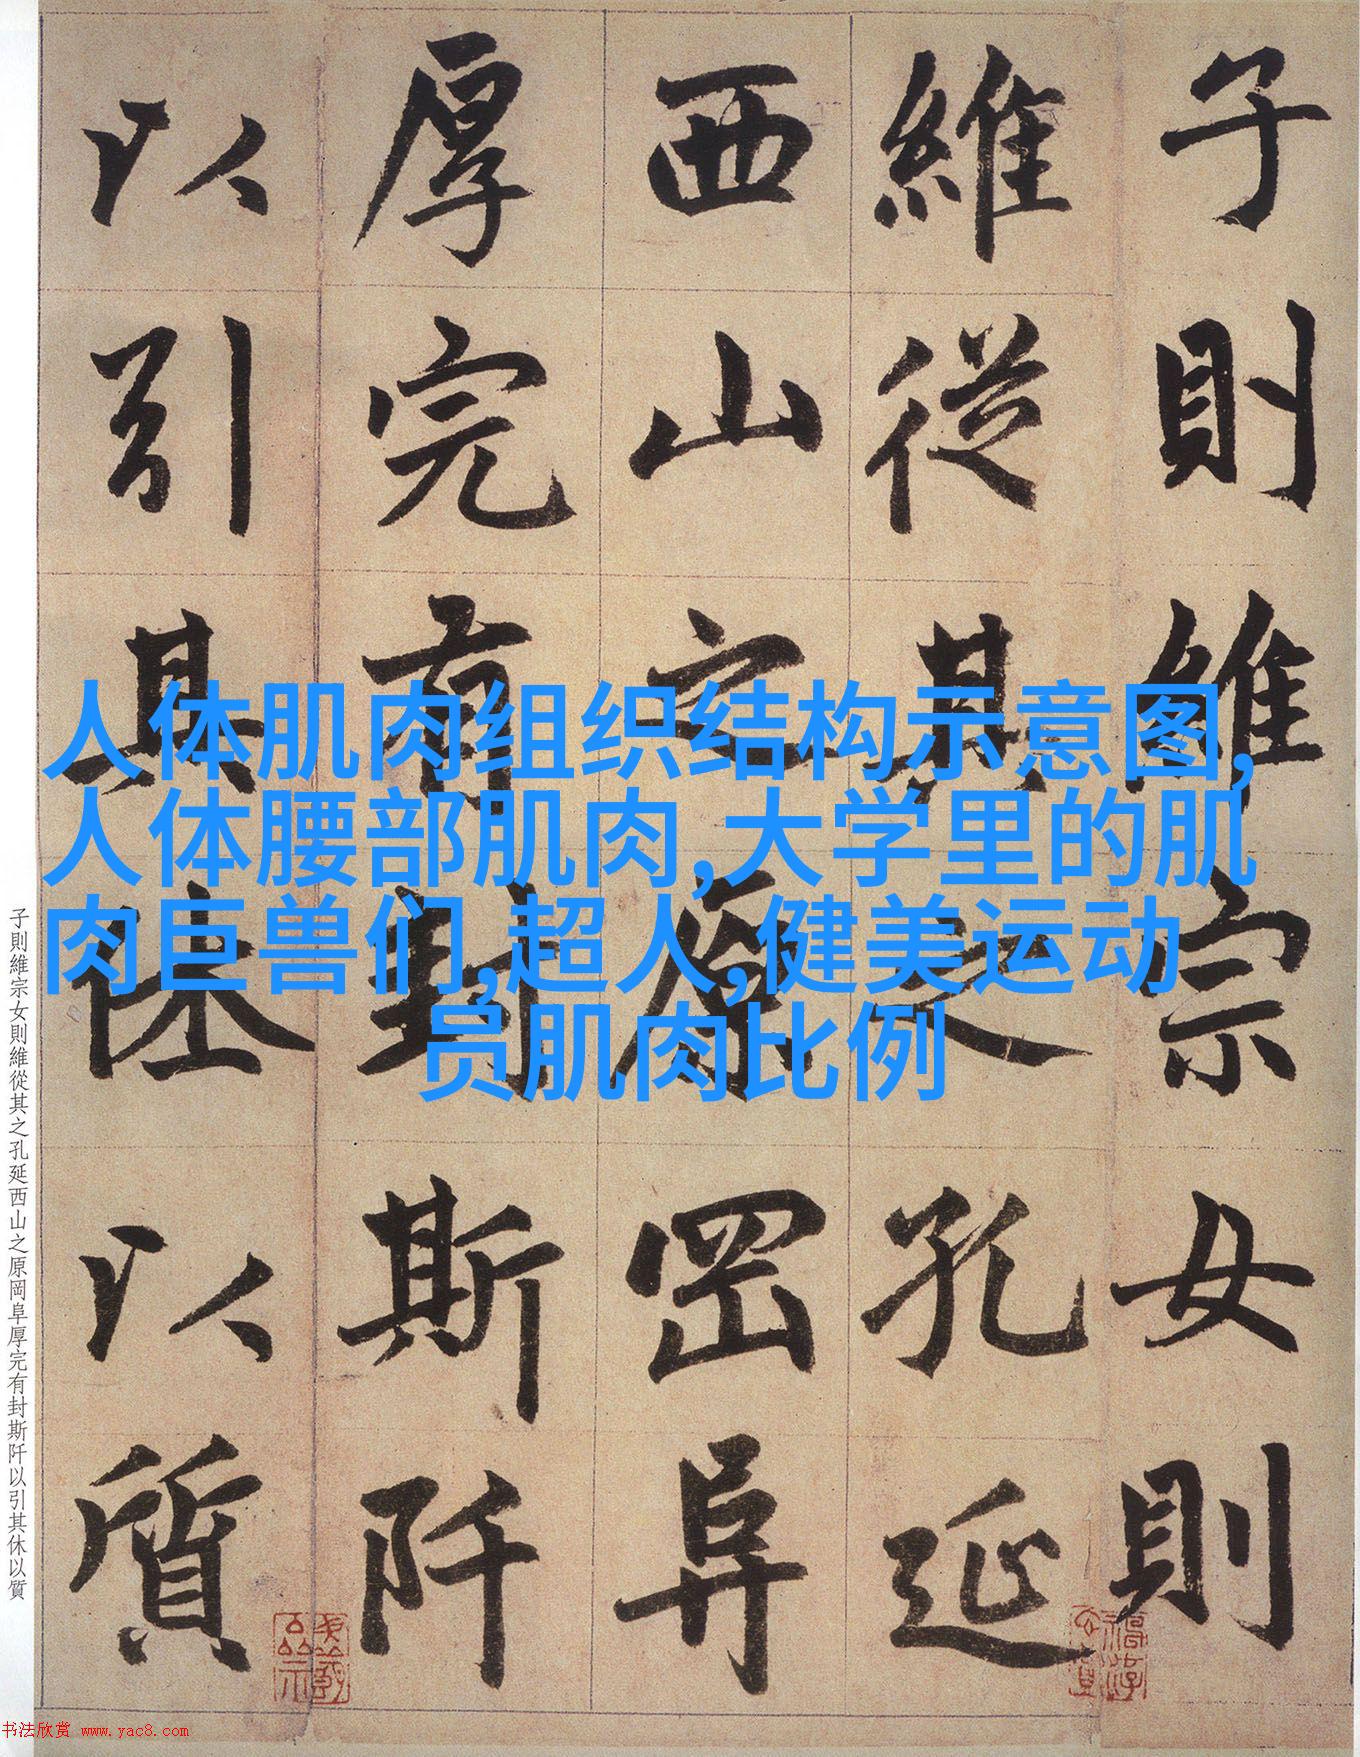 子則維宗女則
維從其之孔延
西山之原罡阜
厚完有封斯阡
以引其休以質
人体肌肉组织结构示意图,
人体腰部肌肉,大学里的肌
肉巨兽们,超人,健美运动
员肌肉比例
子則維宗女則維從其之孔延西山之原岡阜厚完有封斯阡以引其休以質
书法欣赏 www.yac8.com